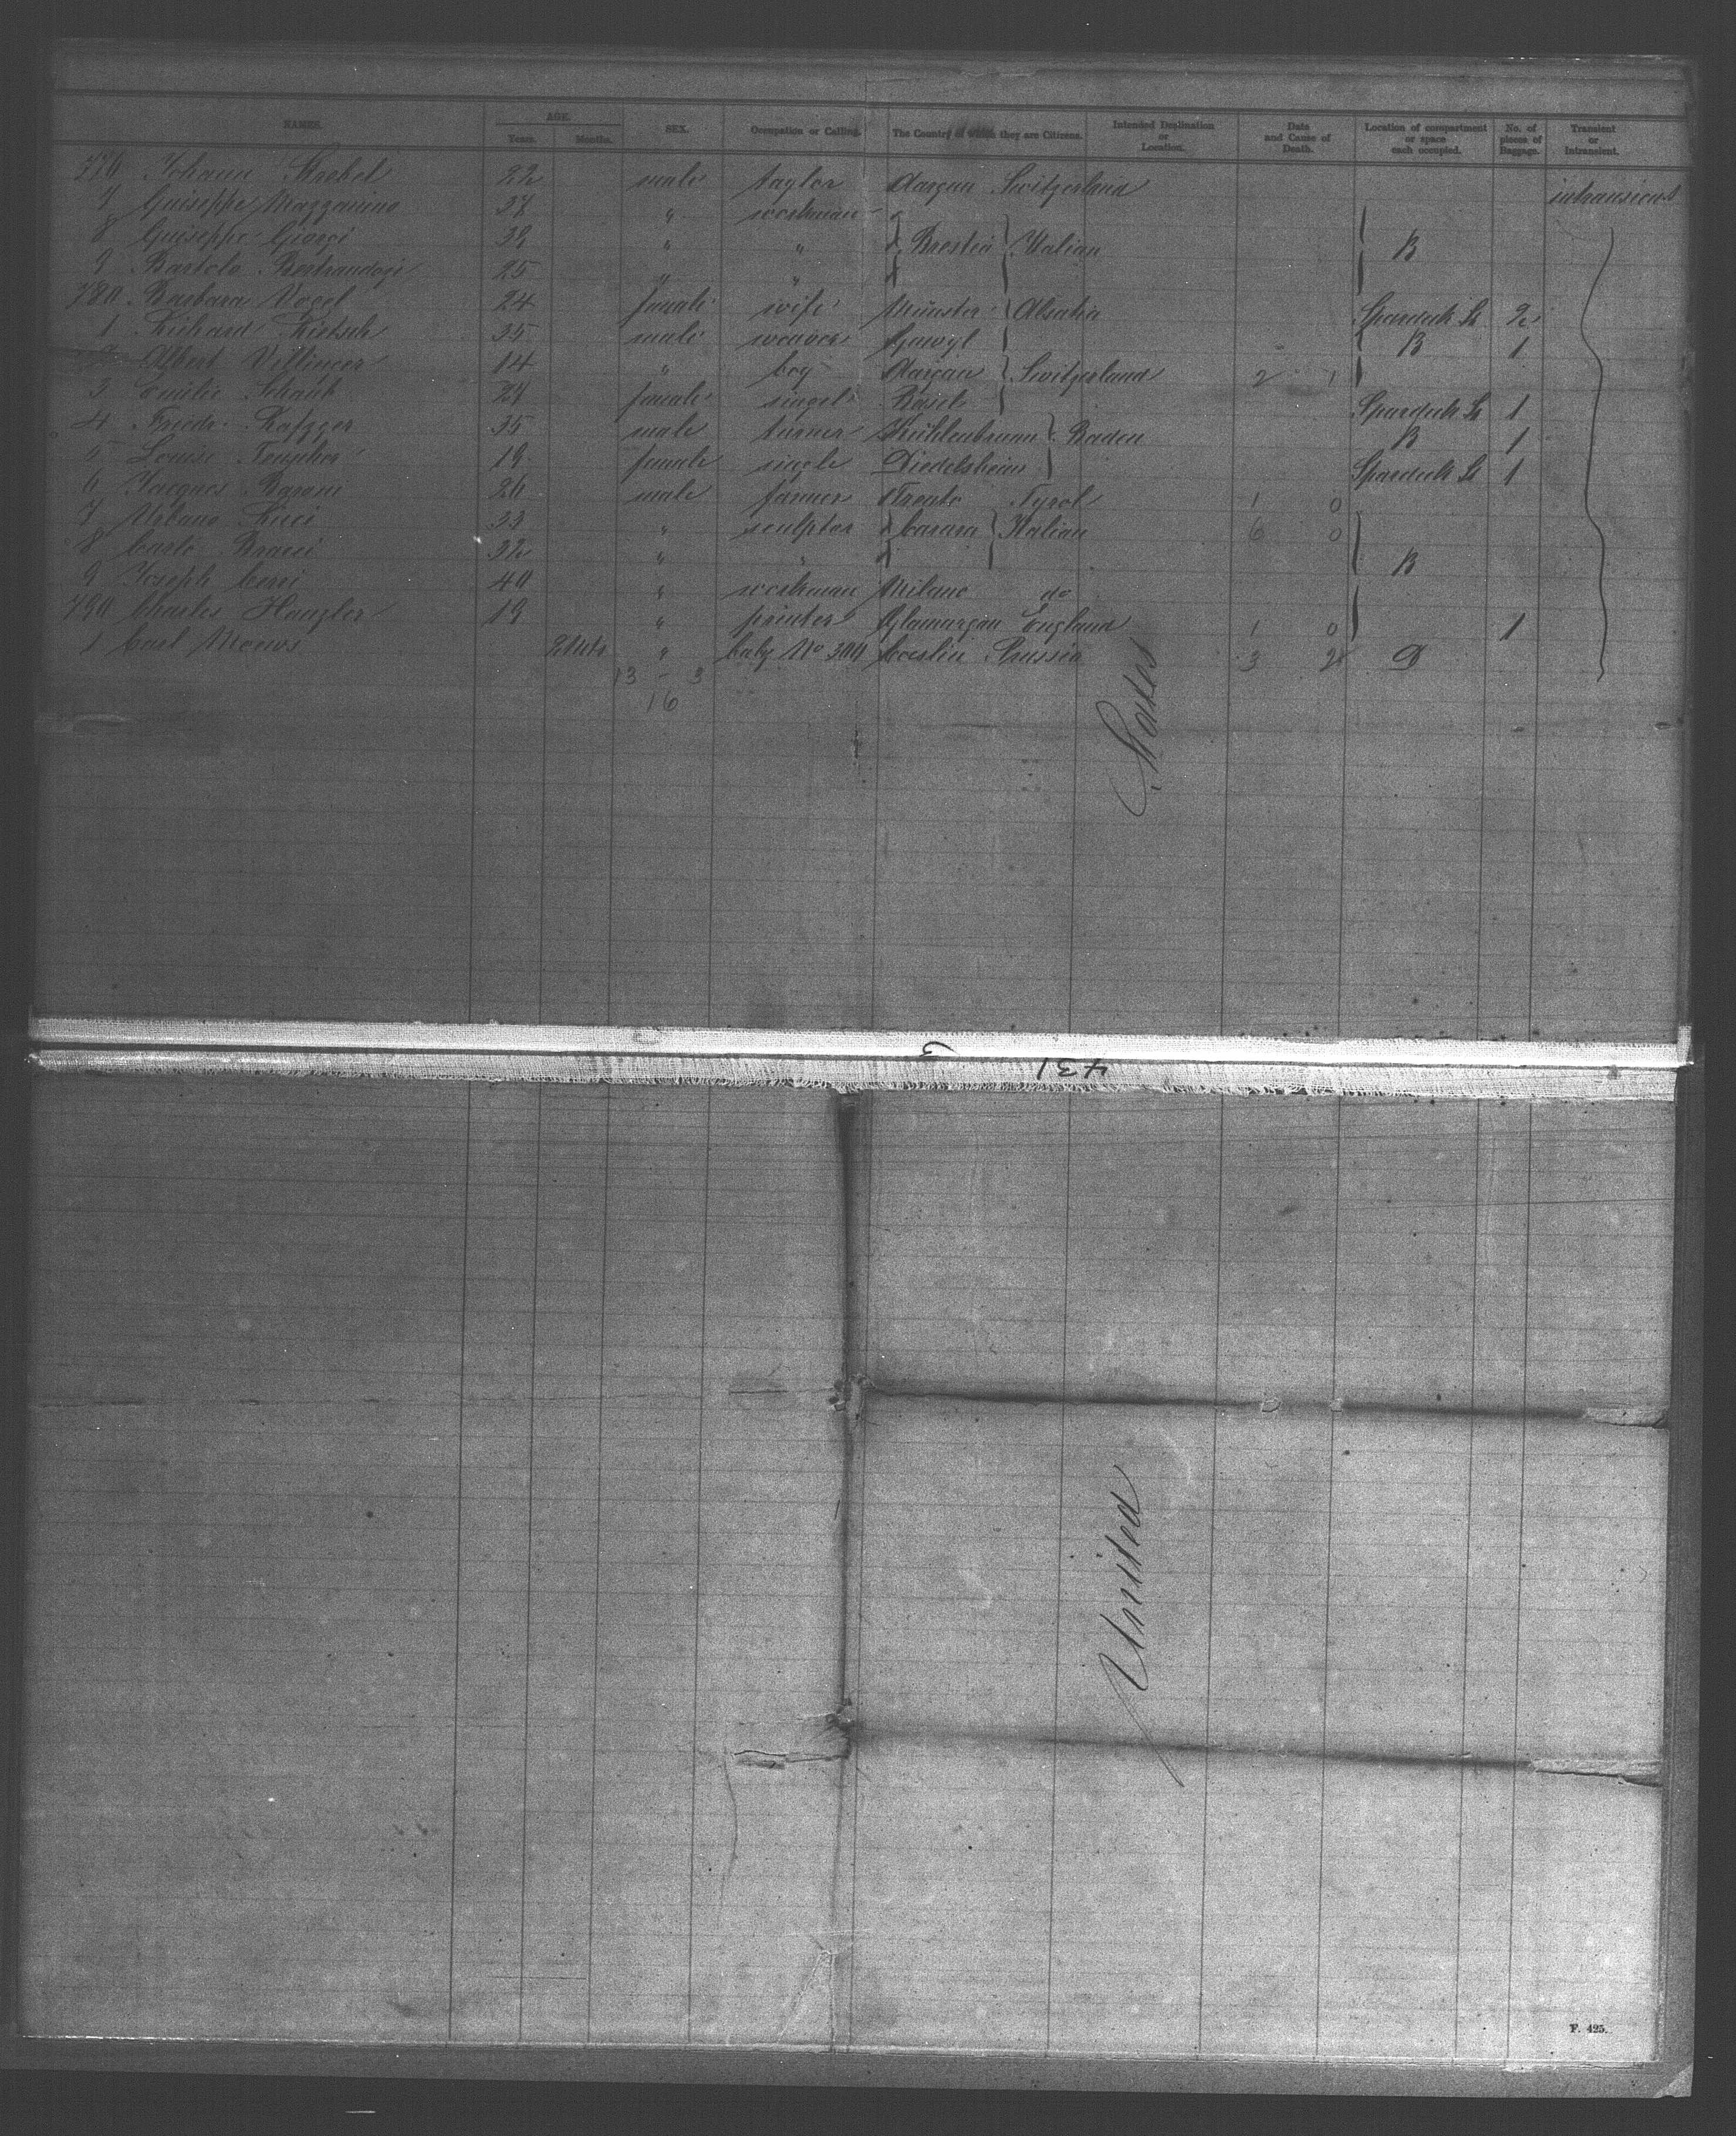 NAMES. AGE. Years. Months. SEX. Occupation or Calling. The Country of which they are Citizens. Intended Destination or Location. Date and Cause of Death. Location of compartment or space each occupied. No. of pieces of Baggage. Transient or Intransient.
776 Johann Strebel 22 male taylor Aargau Switzerland intransient
7 Guiseppe Mazzanino 37 " workman
8 Guiseppe Giorgi 39 " " Brestia Italian B
9 Bartolo 25 " "
780 Barbara Vogel 24 female wife Münster Alsatia Spardeck St 2
1 Richard 35 male weaver B 1
2 Albert Villinger 14 " boy Aargau Switzerland 2 1
3 Emilie Schaub 24 female singel Basel Spardeck St 1
4 Friedr. 35 male turner Mühlenbrunn Baden B 1
5 Louise 19 female single Diedelsheim Spardeck St 1
6 Jacques 26 male farmer Trento Tyrol 1 0
7 Urbano 33 " sculptor Carara Italian 6 0
8 Carlo 32 " " B
9 Joseph 40 " workman Milano do
790 Charles Hanzler 19 " printer Glamorgan England 1 0 1
1 Carl Mews 2 Mts " baby No 304 Coeslin Prussia 3 2 D
13 - 3
16
States
3
431
United
F. 425.